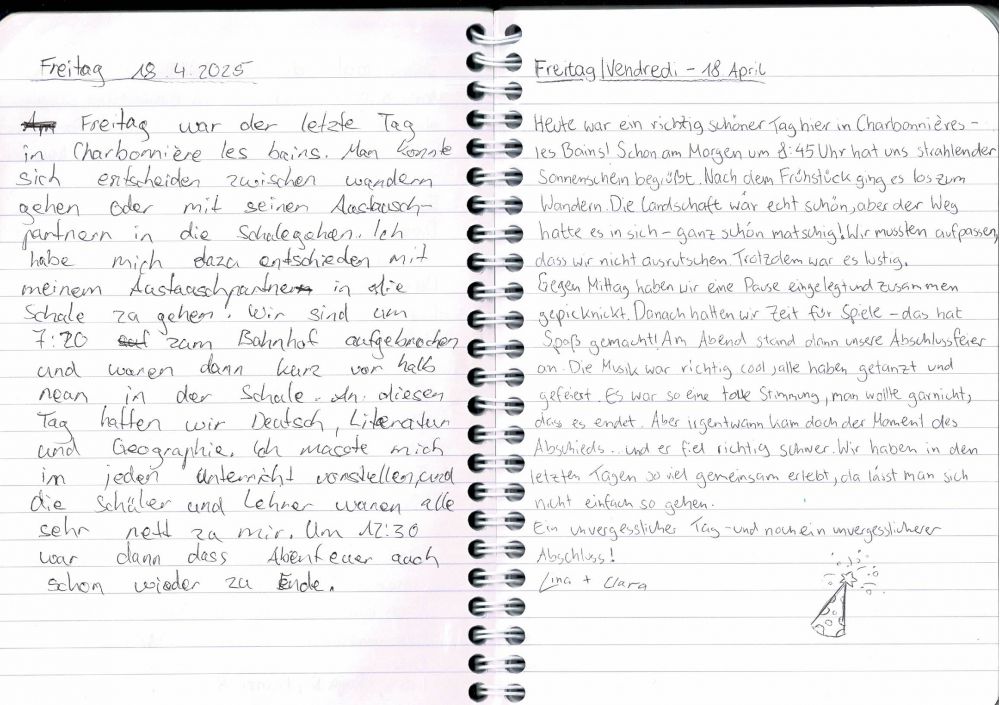 Freitag 18.4.2025
Freitag war der letzte Tag
in Charbonnière les bains. Man konnte
sich entscheiden zwischen wandern
gehen oder mit seinen Austausch-
partnern in die Schule gehen. Ich
habe mich dazu entschieden mit
meinem Austauschpartner in die
Schule zu gehen. Wir sind um
7:20 zum Bahnhof aufgebrochen
und waren dann kurz vor halb
neun in der Schule. An diesen
Tag hatten wir Deutsch, Literatur
und Geographie. Ich musste mich
im jeden Unterricht vorstellen, und
die Schüler und Lehrer waren alle
sehr nett zu mir. Um 12:30
war dann dass Abenteuer auch
schon wieder zu Ende.
Freitag/Vendredi - 18 April
Heute war ein richtig schöner Tag hier in Charbonnières-
les Bains! Schon am Morgen um 8:45 Uhr hat uns strahlender
Sonnenschein begrüßt. Nach dem Frühstück ging es los zum
Wandern. Die Landschaft war echt schön, aber der Weg
hatte es in sich - ganz schön matschig! Wir mussten aufpassen,
dass wir nicht ausrutschen. Trotzdem war es lustig.
Gegen Mittag haben wir eine Pause eingelegt und zusammen
gepicknickt. Danach hatten wir Zeit für Spiele - das hat
Spaß gemacht! Am Abend stand dann unsere Abschlussfeier
an. Die Musik war richtig cool, alle haben getanzt und
gefeiert. Es war so eine tolle Stimmung, man wollte garnicht,
dass es endet. Aber irgentwann kam doch der Moment des
Abschieds... und er fiel richtig schwer. Wir haben in den
letzten Tagen so viel gemeinsam erlebt, da lässt man sich
nicht einfach so gehen.
Ein unvergesslicher Tag - und noch ein unvergesslicherer
Abschluss!
Lina + Clara